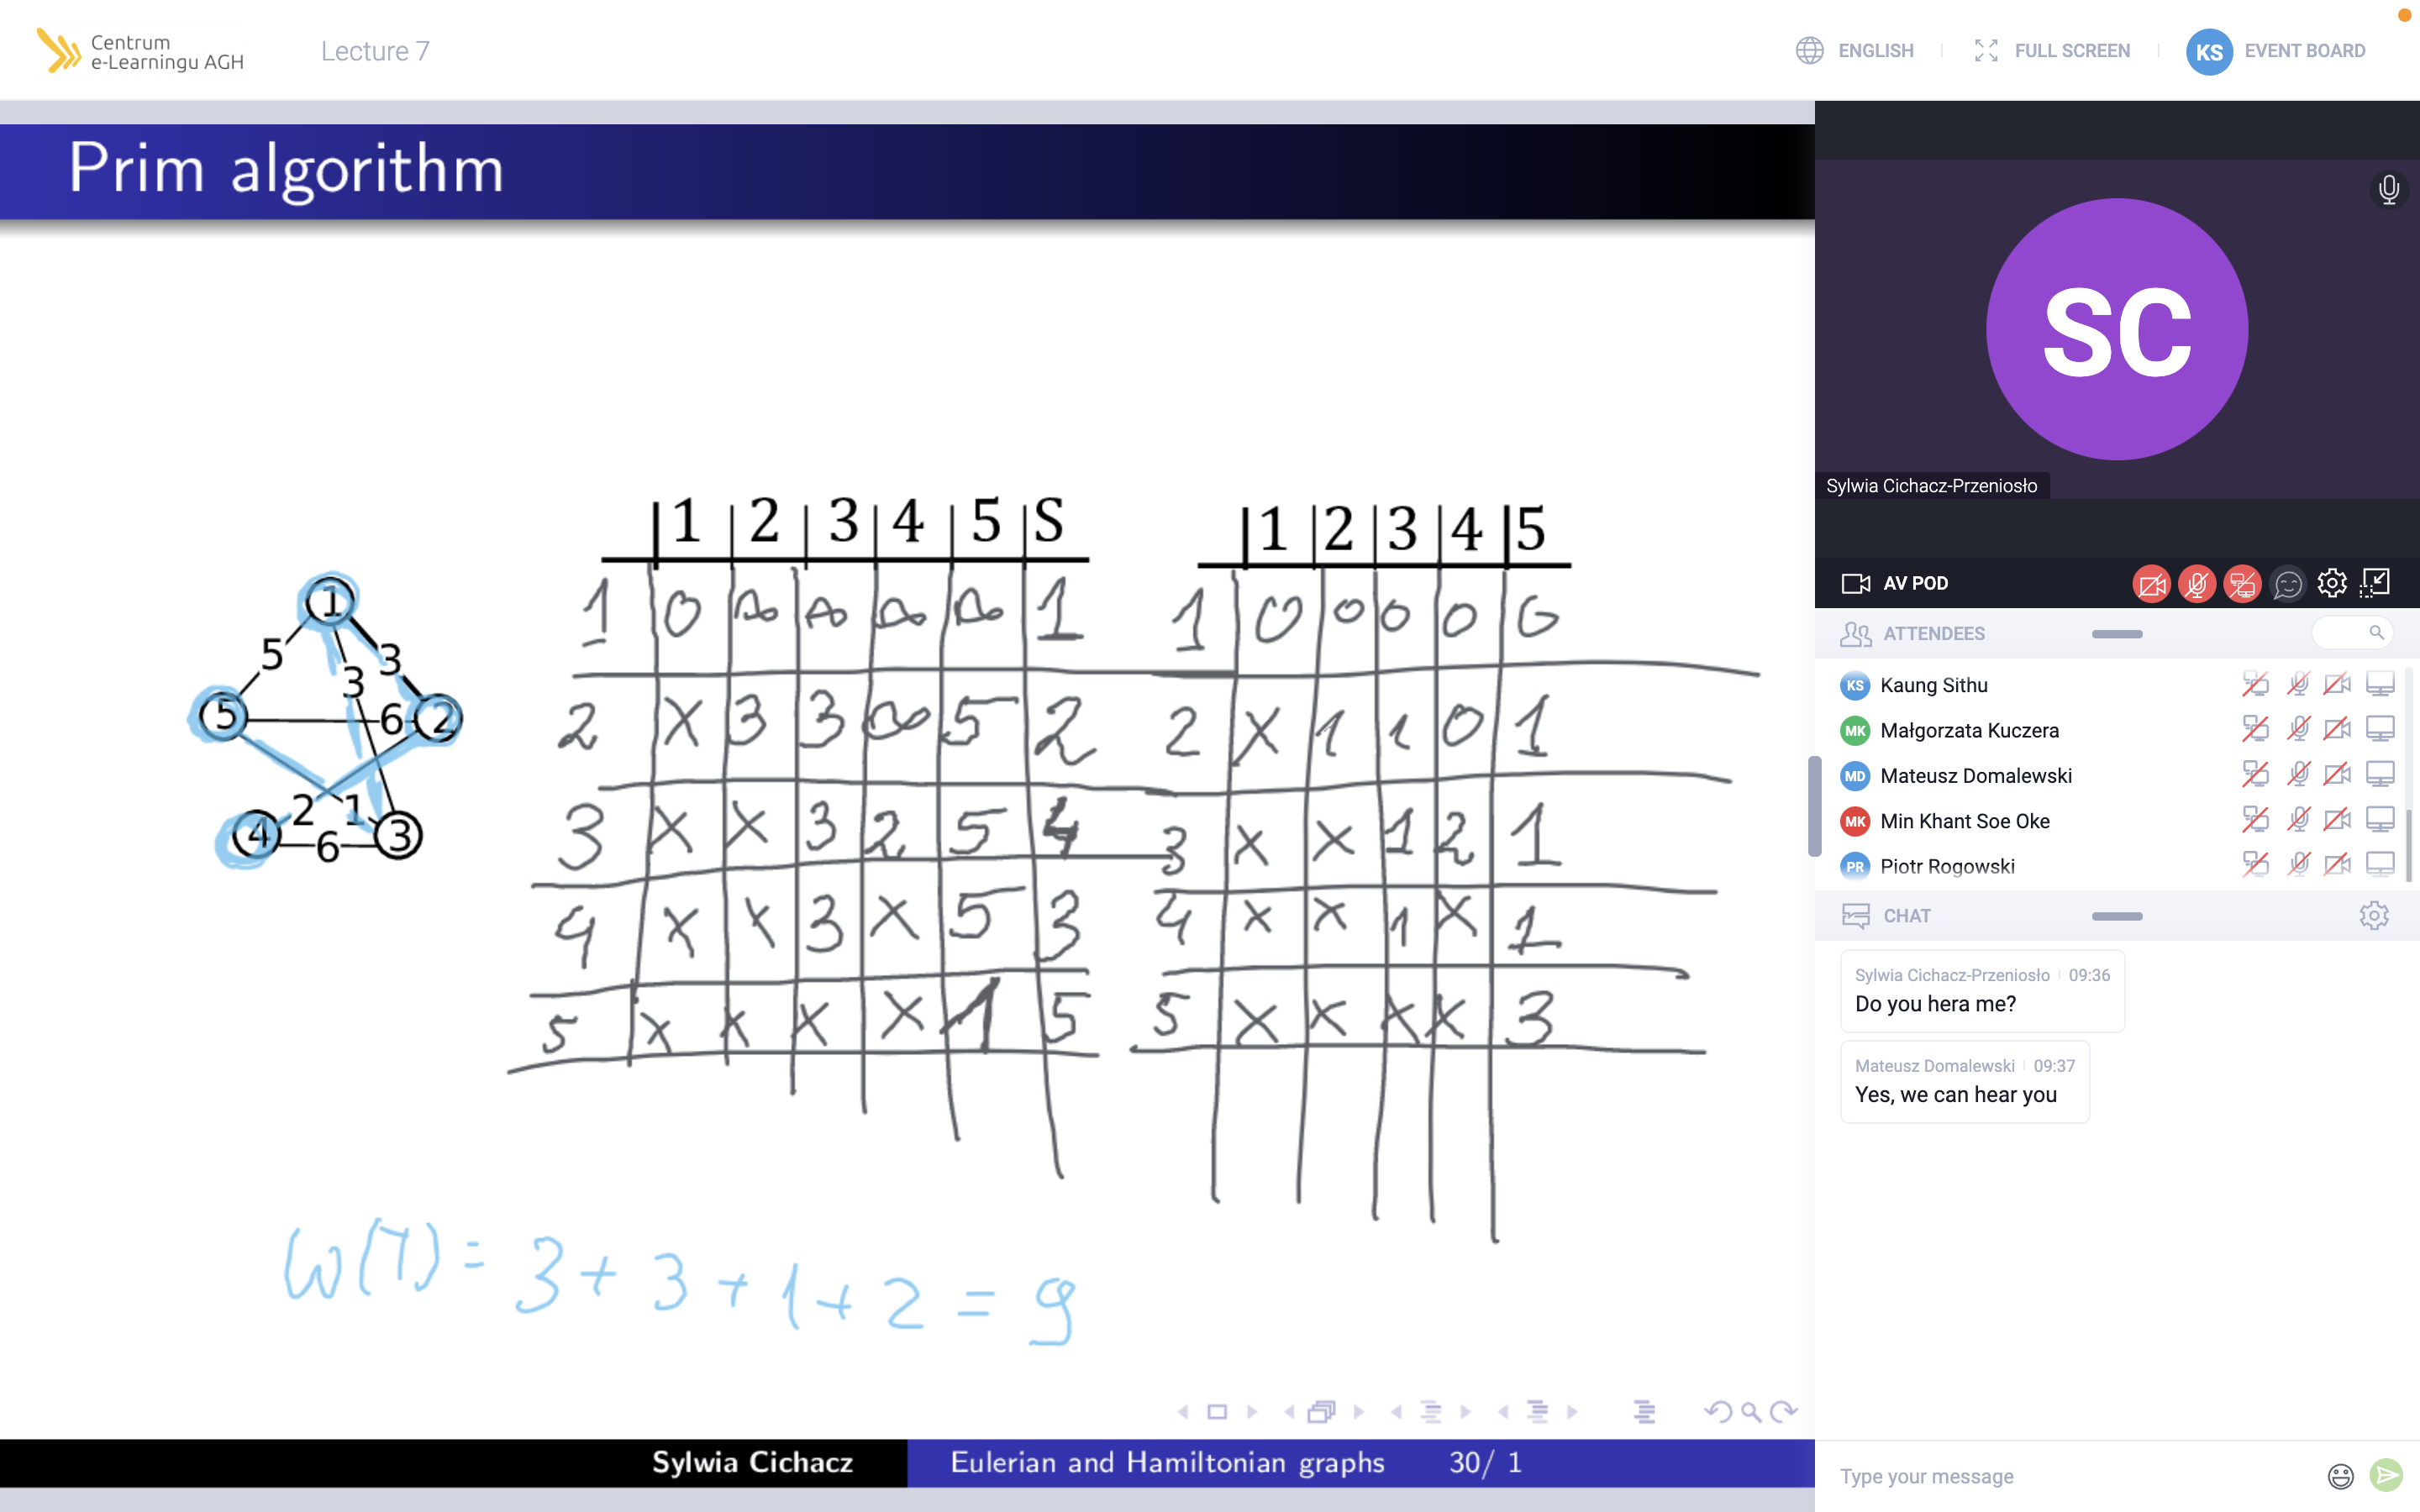 Centrum
e-Learningu AGH
Lecture 7
ENGLISH
FULL SCREEN
KS
EVENT BOARD
Prim algorithm
1
5
3
3
5
6
2
2
1
4
6
3
1 2 3 4 5 S
1 0 ∞ ∞ ∞ ∞ 1
2 X 3 3 ∞ 5 2
3 X X 3 2 5 4
4 X X 3 X 5 3
5 X X X X 1 5
1 2 3 4 5
1 0 0 0 0 0
2 X 1 1 0 1
3 X X 1 2 1
4 X X 1 X 1
5 X X X X 3
W(T) = 3 + 3 + 1 + 2 = 9
Sylwia Cichacz
Eulerian and Hamiltonian graphs
30/ 1
SC
Sylwia Cichacz-Przeniosło
AV POD
ATTENDEES
KS Kaung Sithu
MK Małgorzata Kuczera
MD Mateusz Domalewski
MK Min Khant Soe Oke
PR Piotr Rogowski
CHAT
Sylwia Cichacz-Przeniosło 09:36
Do you hera me?
Mateusz Domalewski 09:37
Yes, we can hear you
Type your message